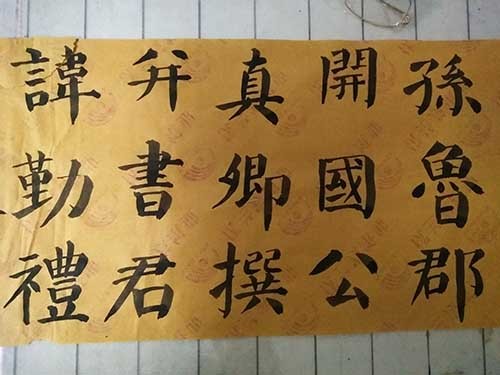 孫魯郡
開國公
真卿撰
并書君
諱勤禮